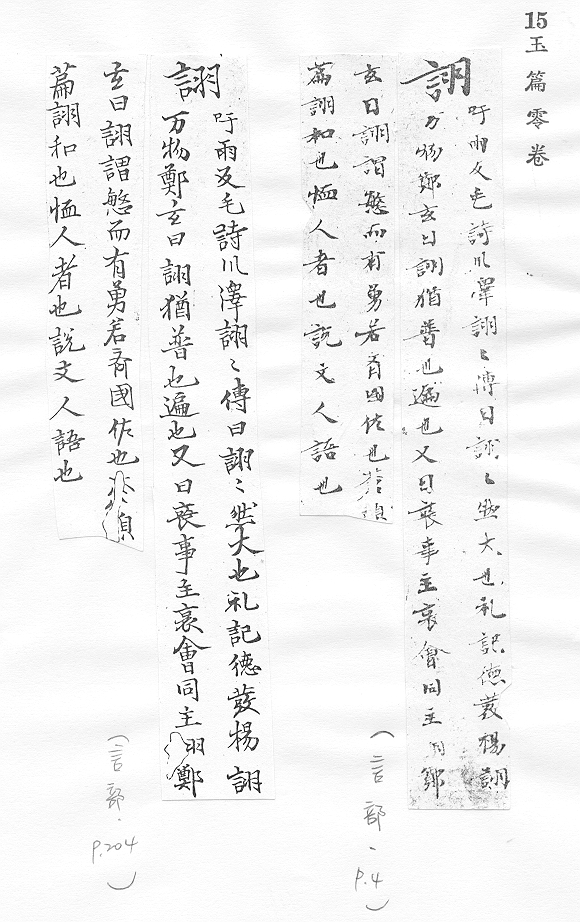 15
玉篇零卷
詡
吁雨反毛詩川澤詡〻傳曰詡〻然大也礼記德發楊詡
万物鄭玄曰詡猶普也遍也又曰喪事主哀會同主羽鄭
玄曰詡謂慜而有勇若齊國佐也蒼頡
篇詡和也恤人者也說文人語也
(言部.
P.4)
詡
吁雨反毛詩川澤詡〻傳曰詡〻然大也礼記德發楊詡
万物鄭玄曰詡猶普也遍也又曰喪事主哀會同主羽鄭
玄曰詡謂慜而有勇若齊國佐也
篇詡和也恤人者也說文人語也
(言部.
P.204)